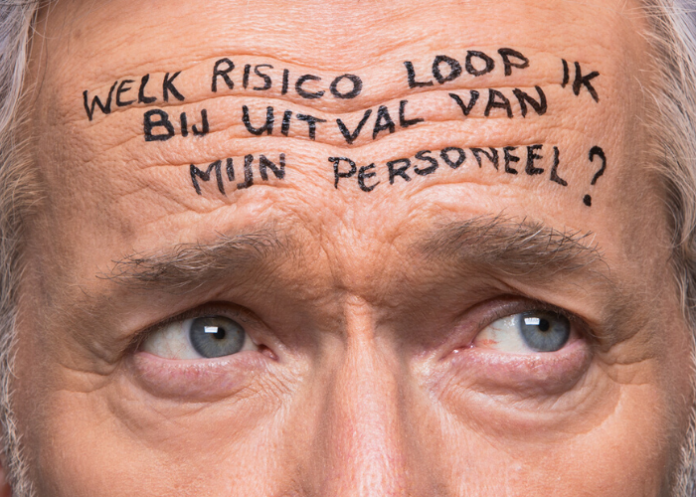 WELK RISICO LOOP IK
BIJ UITVAL VAN
MIJN PERSONEEL?